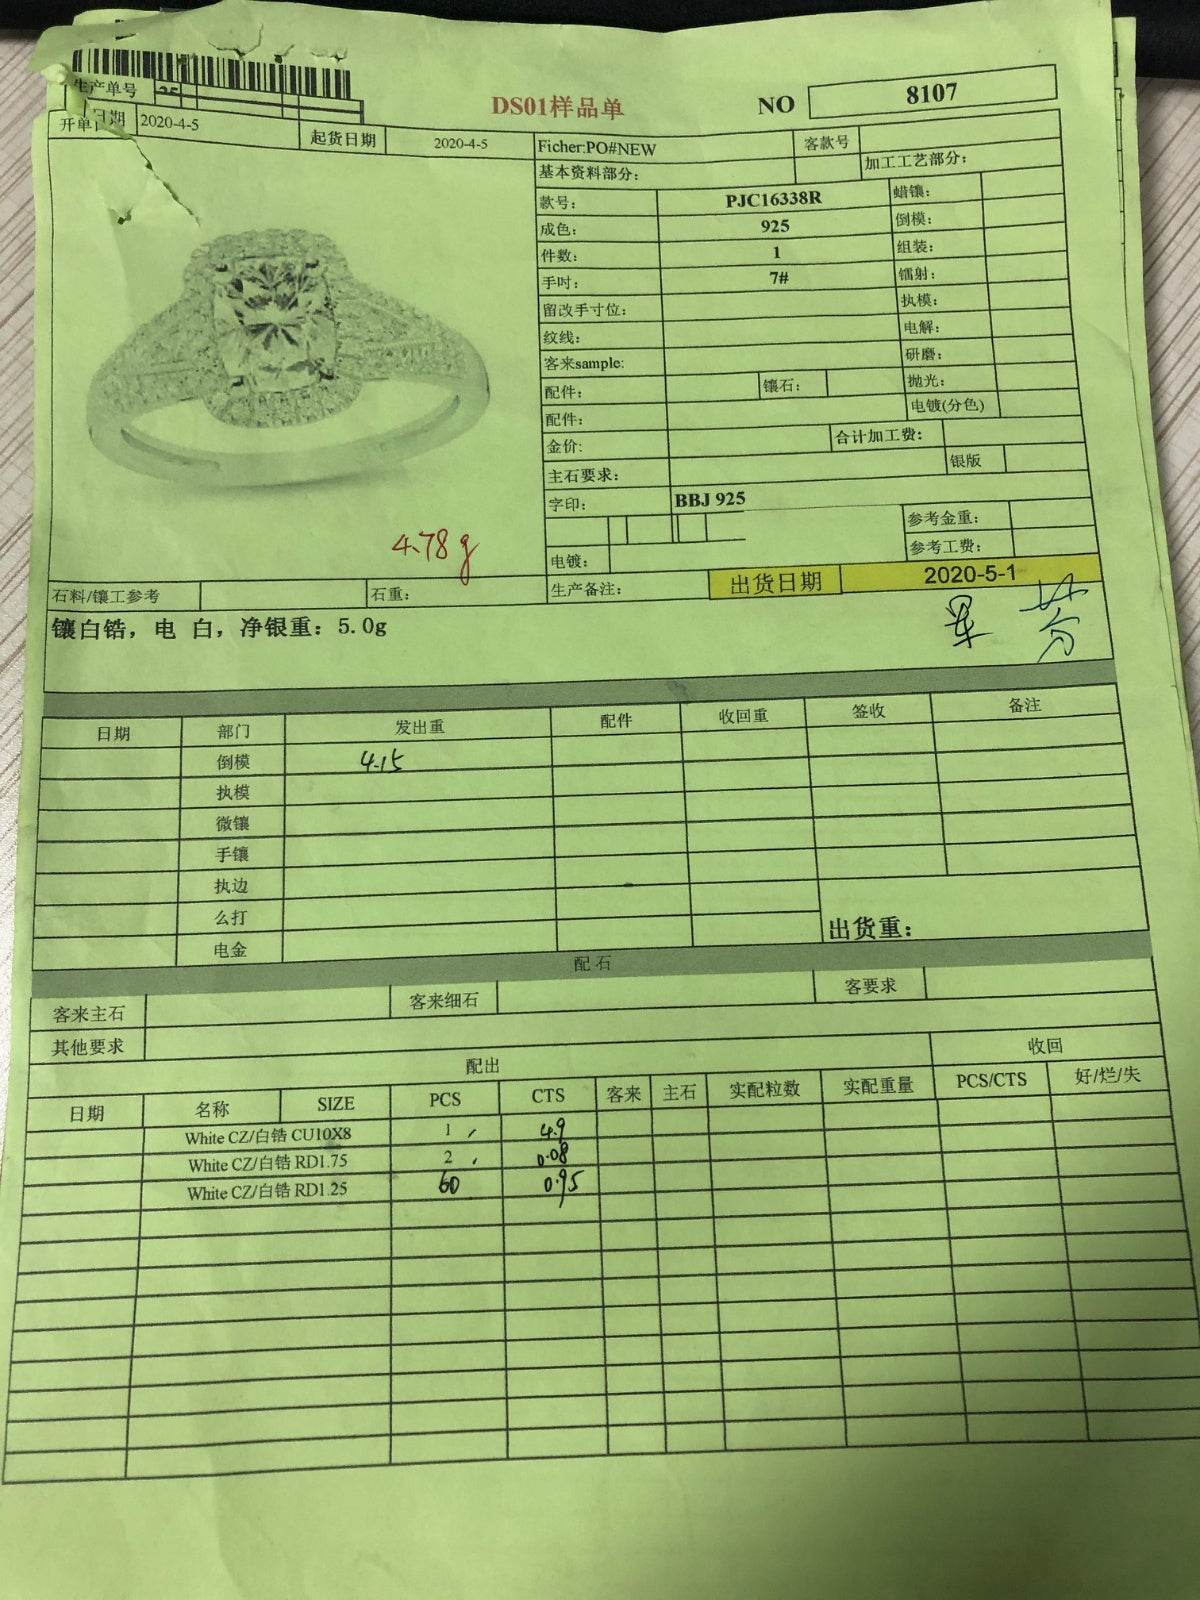 生产单号
DS01样品单 NO 8107
开单日期 2020-4-5 起货日期 2020-4-5 Ficher:PO#NEW 客款号
基本资料部分: 加工工艺部分:
款号: PJC16338R 蜡镶:
成色: 925 倒模:
件数: 1 组装:
手吋: 7# 镭射:
留改手寸位: 执模:
纹线: 电解:
客来sample: 研磨:
配件: 镶石: 抛光:
配件: 电镀(分色)
金价: 合计加工费:
主石要求: 银版
字印: BBJ 925
参考金重:
4.78g
电镀: 参考工费:
石料/镶工参考 石重: 生产备注: 出货日期 2020-5-1
镶白锆，电 白，净银重：5.0g
日期 部门 发出重 配件 收回重 签收 备注
倒模 4.15
执模
微镶
手镶
执边
么打
电金 出货重：
配石
客来主石 客来细石 客要求
其他要求
配出 收回
日期 名称 SIZE PCS CTS 客来 主石 实配粒数 实配重量 PCS/CTS 好/烂/失
White CZ/白锆 CU10X8 1 4.9
White CZ/白锆 RD1.75 2 0.08
White CZ/白锆 RD1.25 60 0.95